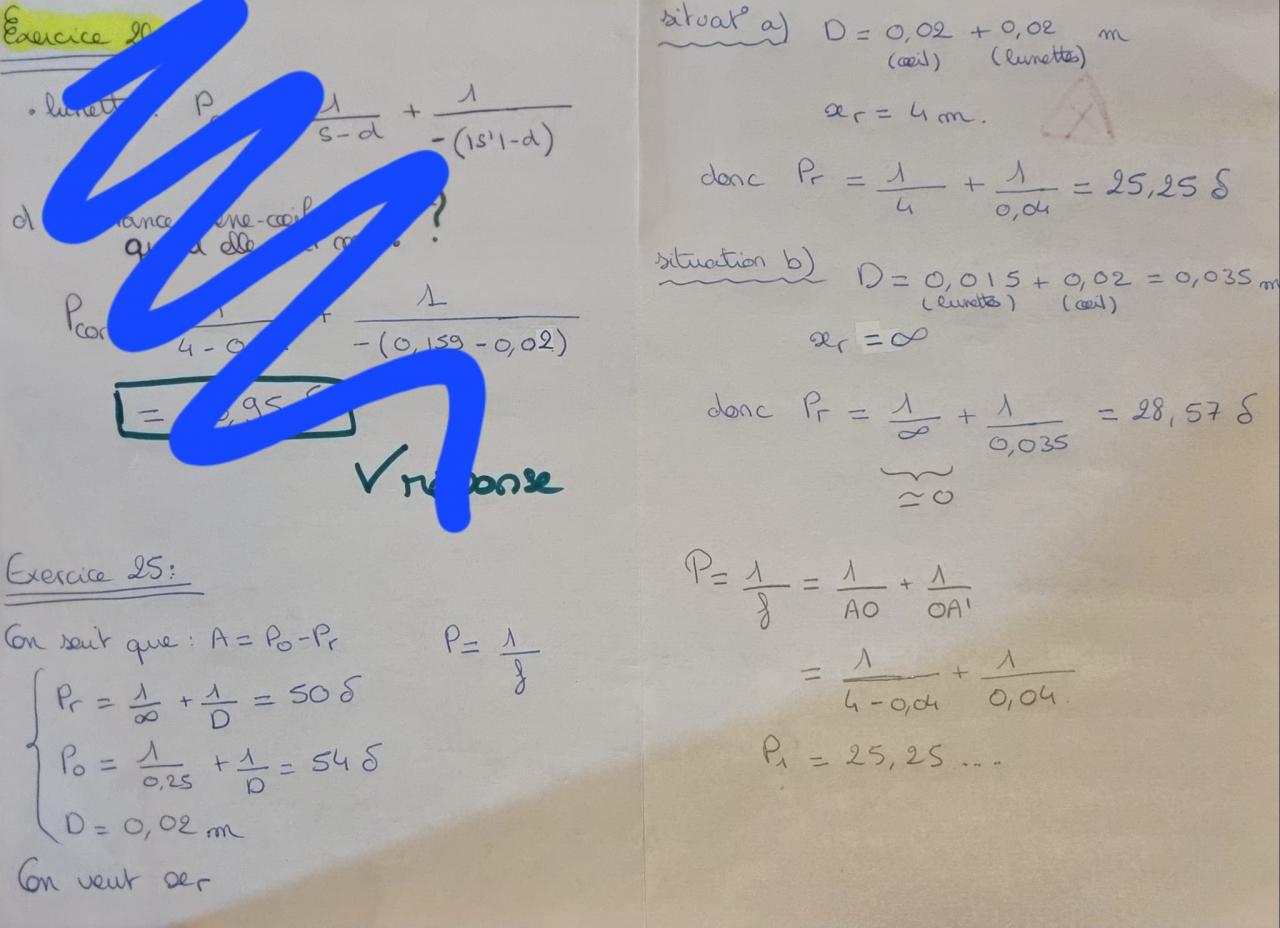 Exercice 20
. lunett : P 1/(s-d) + 1/(-(|s'|-d))
d ?
Pcor 1/(4 - 0 + 1/(-(0,159 - 0,02))
= ,95
√ réponse
Exercice 25:
On sait que : A = Po - Pr P = 1/f
Pr = 1/∞ + 1/D = 50 δ
Po = 1/0,25 + 1/D = 54 δ
D = 0,02 m
On veut xr
situat° a) D = 0,02 + 0,02 m
(œil) (lunettes)
xr = 4 m.
donc Pr = 1/4 + 1/0,04 = 25,25 δ
situation b) D = 0,015 + 0,02 = 0,035 m
(lunettes) (œil)
xr = ∞
donc Pr = 1/∞ + 1/0,035 = 28,57 δ
≃ 0
P = 1/f = 1/AO + 1/OA'
= 1/(4 - 0,04) + 1/0,04.
P1 = 25,25 ....